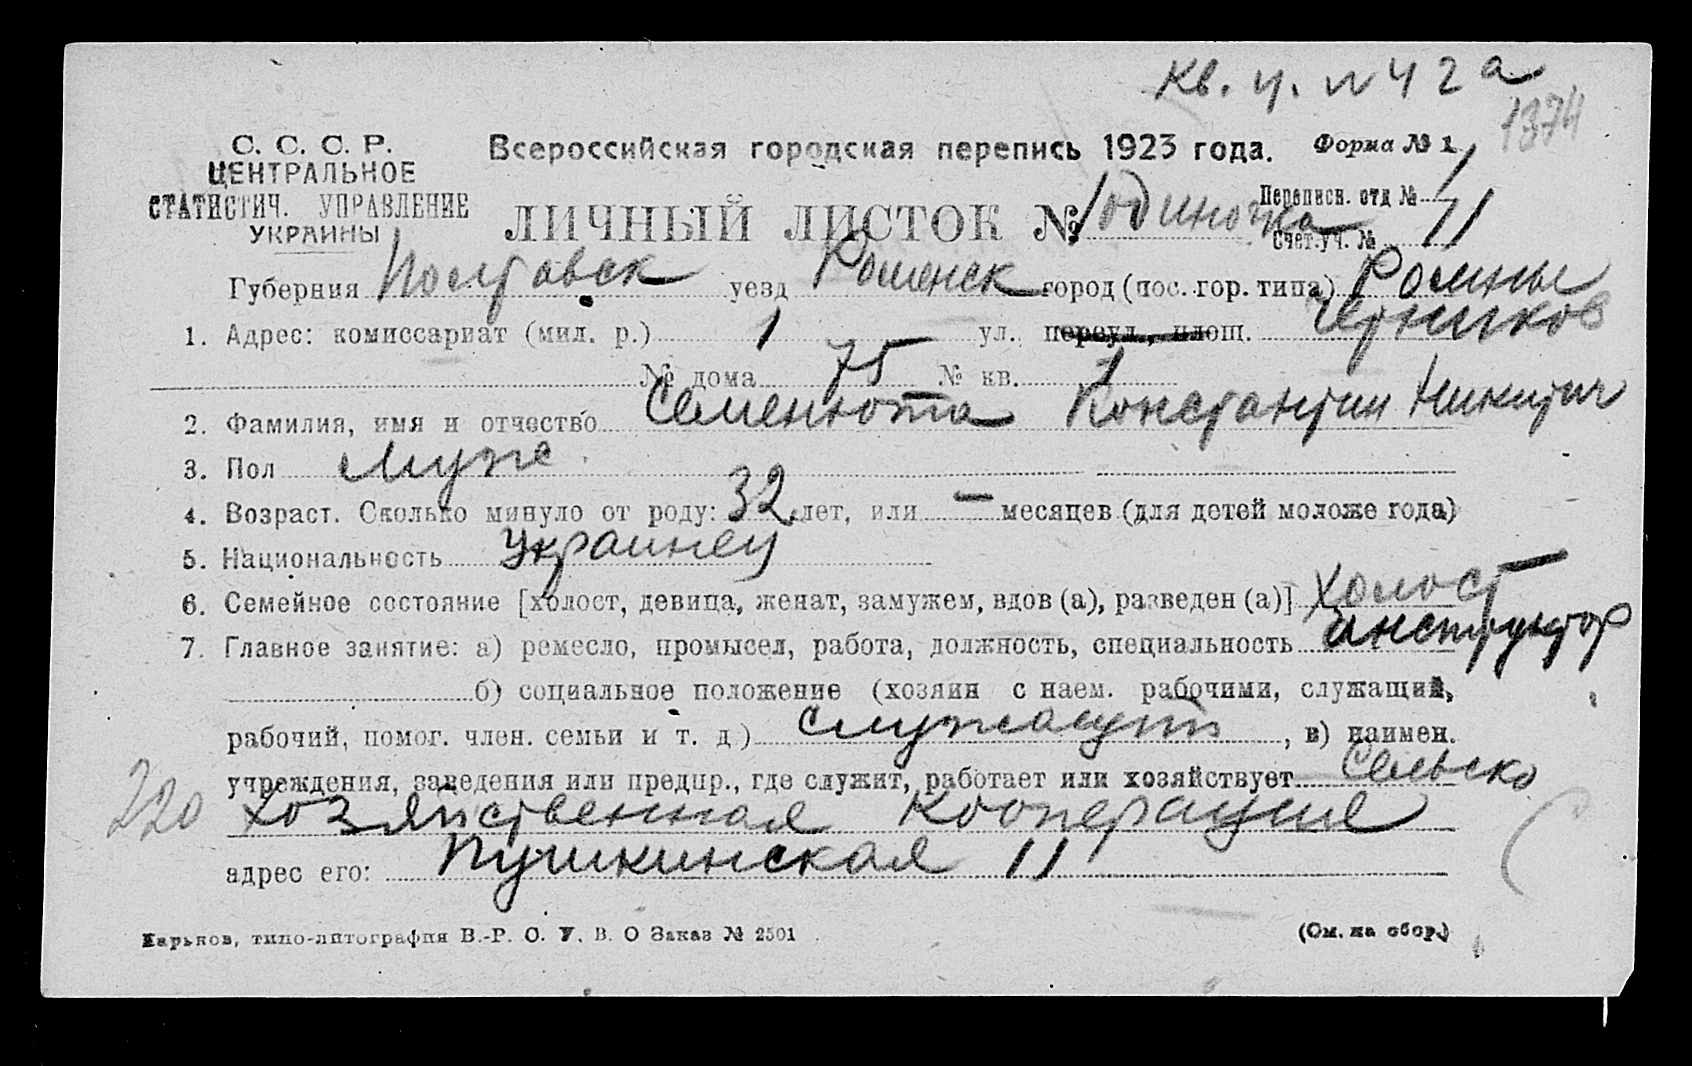 кв. ч. № 42а
1374
С. С. С. Р.
ЦЕНТРАЛЬНОЕ
СТАТИСТИЧ. УПРАВЛЕНИЕ
УКРАИНЫ
Всероссийская городская перепись 1923 года. Форма № 1
Переписн. отд № 1
ЛИЧНЫЙ ЛИСТОК № 1 одиночка
Счет. уч. № 11
Губерния Полтавск уезд Роменск город (пос. гор. типа) Ромны
1. Адрес: комиссариат (мил. р.) 1 ул. переул., площ.
№ дома 75 № кв. 1
2. Фамилия, имя и отчество Семенюта Константин Никитич
3. Пол Муж.
4. Возраст. Сколько минуло от роду: 32 лет, или — месяцев (для детей моложе года)
5. Национальность Украинец
6. Семейное состояние [холост, девица, женат, замужем, вдов (а), разведен (а)] холост
7. Главное занятие: а) ремесло, промысел, работа, должность, специальность инструктор
б) социальное положение (хозяин с наем. рабочими, служащий,
рабочий, помог. член. семьи и т. д.) служащий, в) наимен.
учреждения, заведения или предпр., где служит, работает или хозяйствует Сельско
220 хозяйственная кооперация
адрес его: Пушкинская 11
Харьков, типо-литография В.-Р. О. У. В. О Заказ № 2501
(См. на обор.)